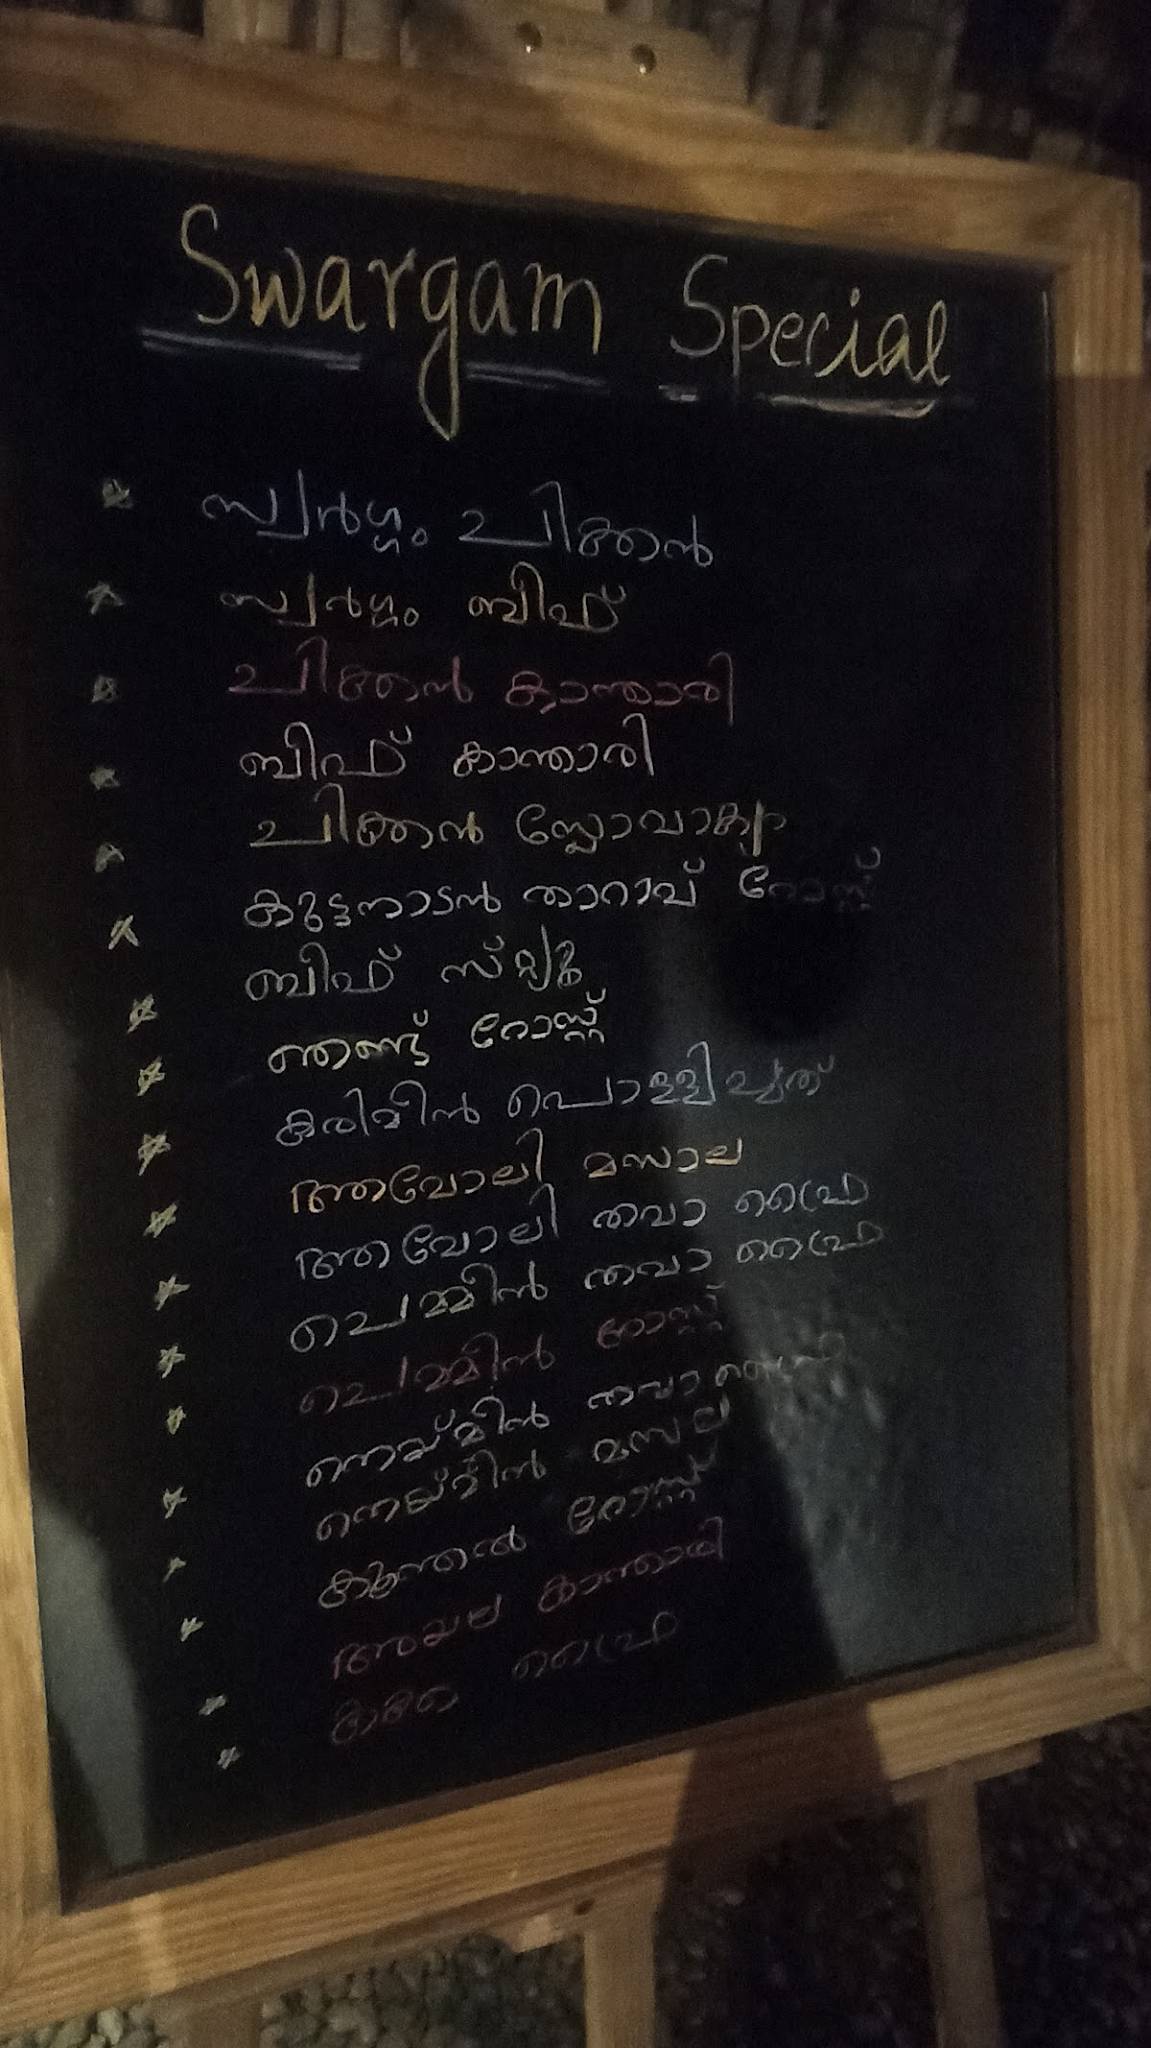 Swargam Special
സ്വർഗ്ഗം ചിക്കൻ
സ്വർഗ്ഗം ബീഫ്
ചിക്കൻ കാന്താരി
ബീഫ് കാന്താരി
ചിക്കൻ സ്ലോവാക്യ
കുട്ടനാടൻ താറാവ് റോസ്റ്റ്
ബീഫ് സ്റ്റ്യൂ
ഞണ്ട് റോസ്റ്റ്
കരിമീൻ പൊള്ളിച്ചത്
ആവോലി മസാല
ആവോലി തവാ ഫ്രൈ
ചെമ്മീൻ തവാ ഫ്രൈ
ചെമ്മീൻ റോസ്റ്റ്
നെയ്മീൻ തവാ ഫ്രൈ
നെയ്മീൻ മസാല
കൂന്തൽ റോസ്റ്റ്
അയല കാന്താരി
കക്ക ഫ്രൈ